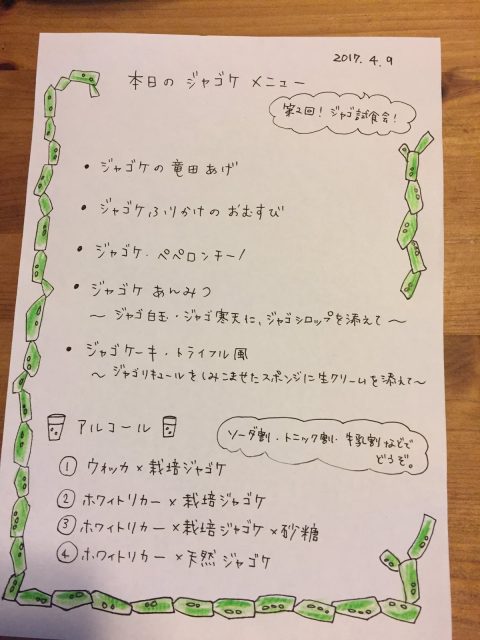 2017. 4. 9
本日の ジャゴケ メニュー
第2回! ジャゴ試食会!
・ジャゴケの竜田あげ
・ジャゴケふりかけの おむすび
・ジャゴケ・ペペロンチーノ
・ジャゴケ あんみつ
〜 ジャゴ白玉・ジャゴ寒天に、ジャゴシロップを添えて 〜
・ジャゴケーキ・トライフル風
〜 ジャゴリキュールをしみこませたスポンジに生クリームを添えて〜
アルコール
ソーダ割・トニック割・牛乳割などで
どうぞ。
① ウォッカ × 栽培ジャゴケ
② ホワイトリカー × 栽培ジャゴケ
③ ホワイトリカー × 栽培ジャゴケ × 砂糖
④ ホワイトリカー × 天然ジャゴケ